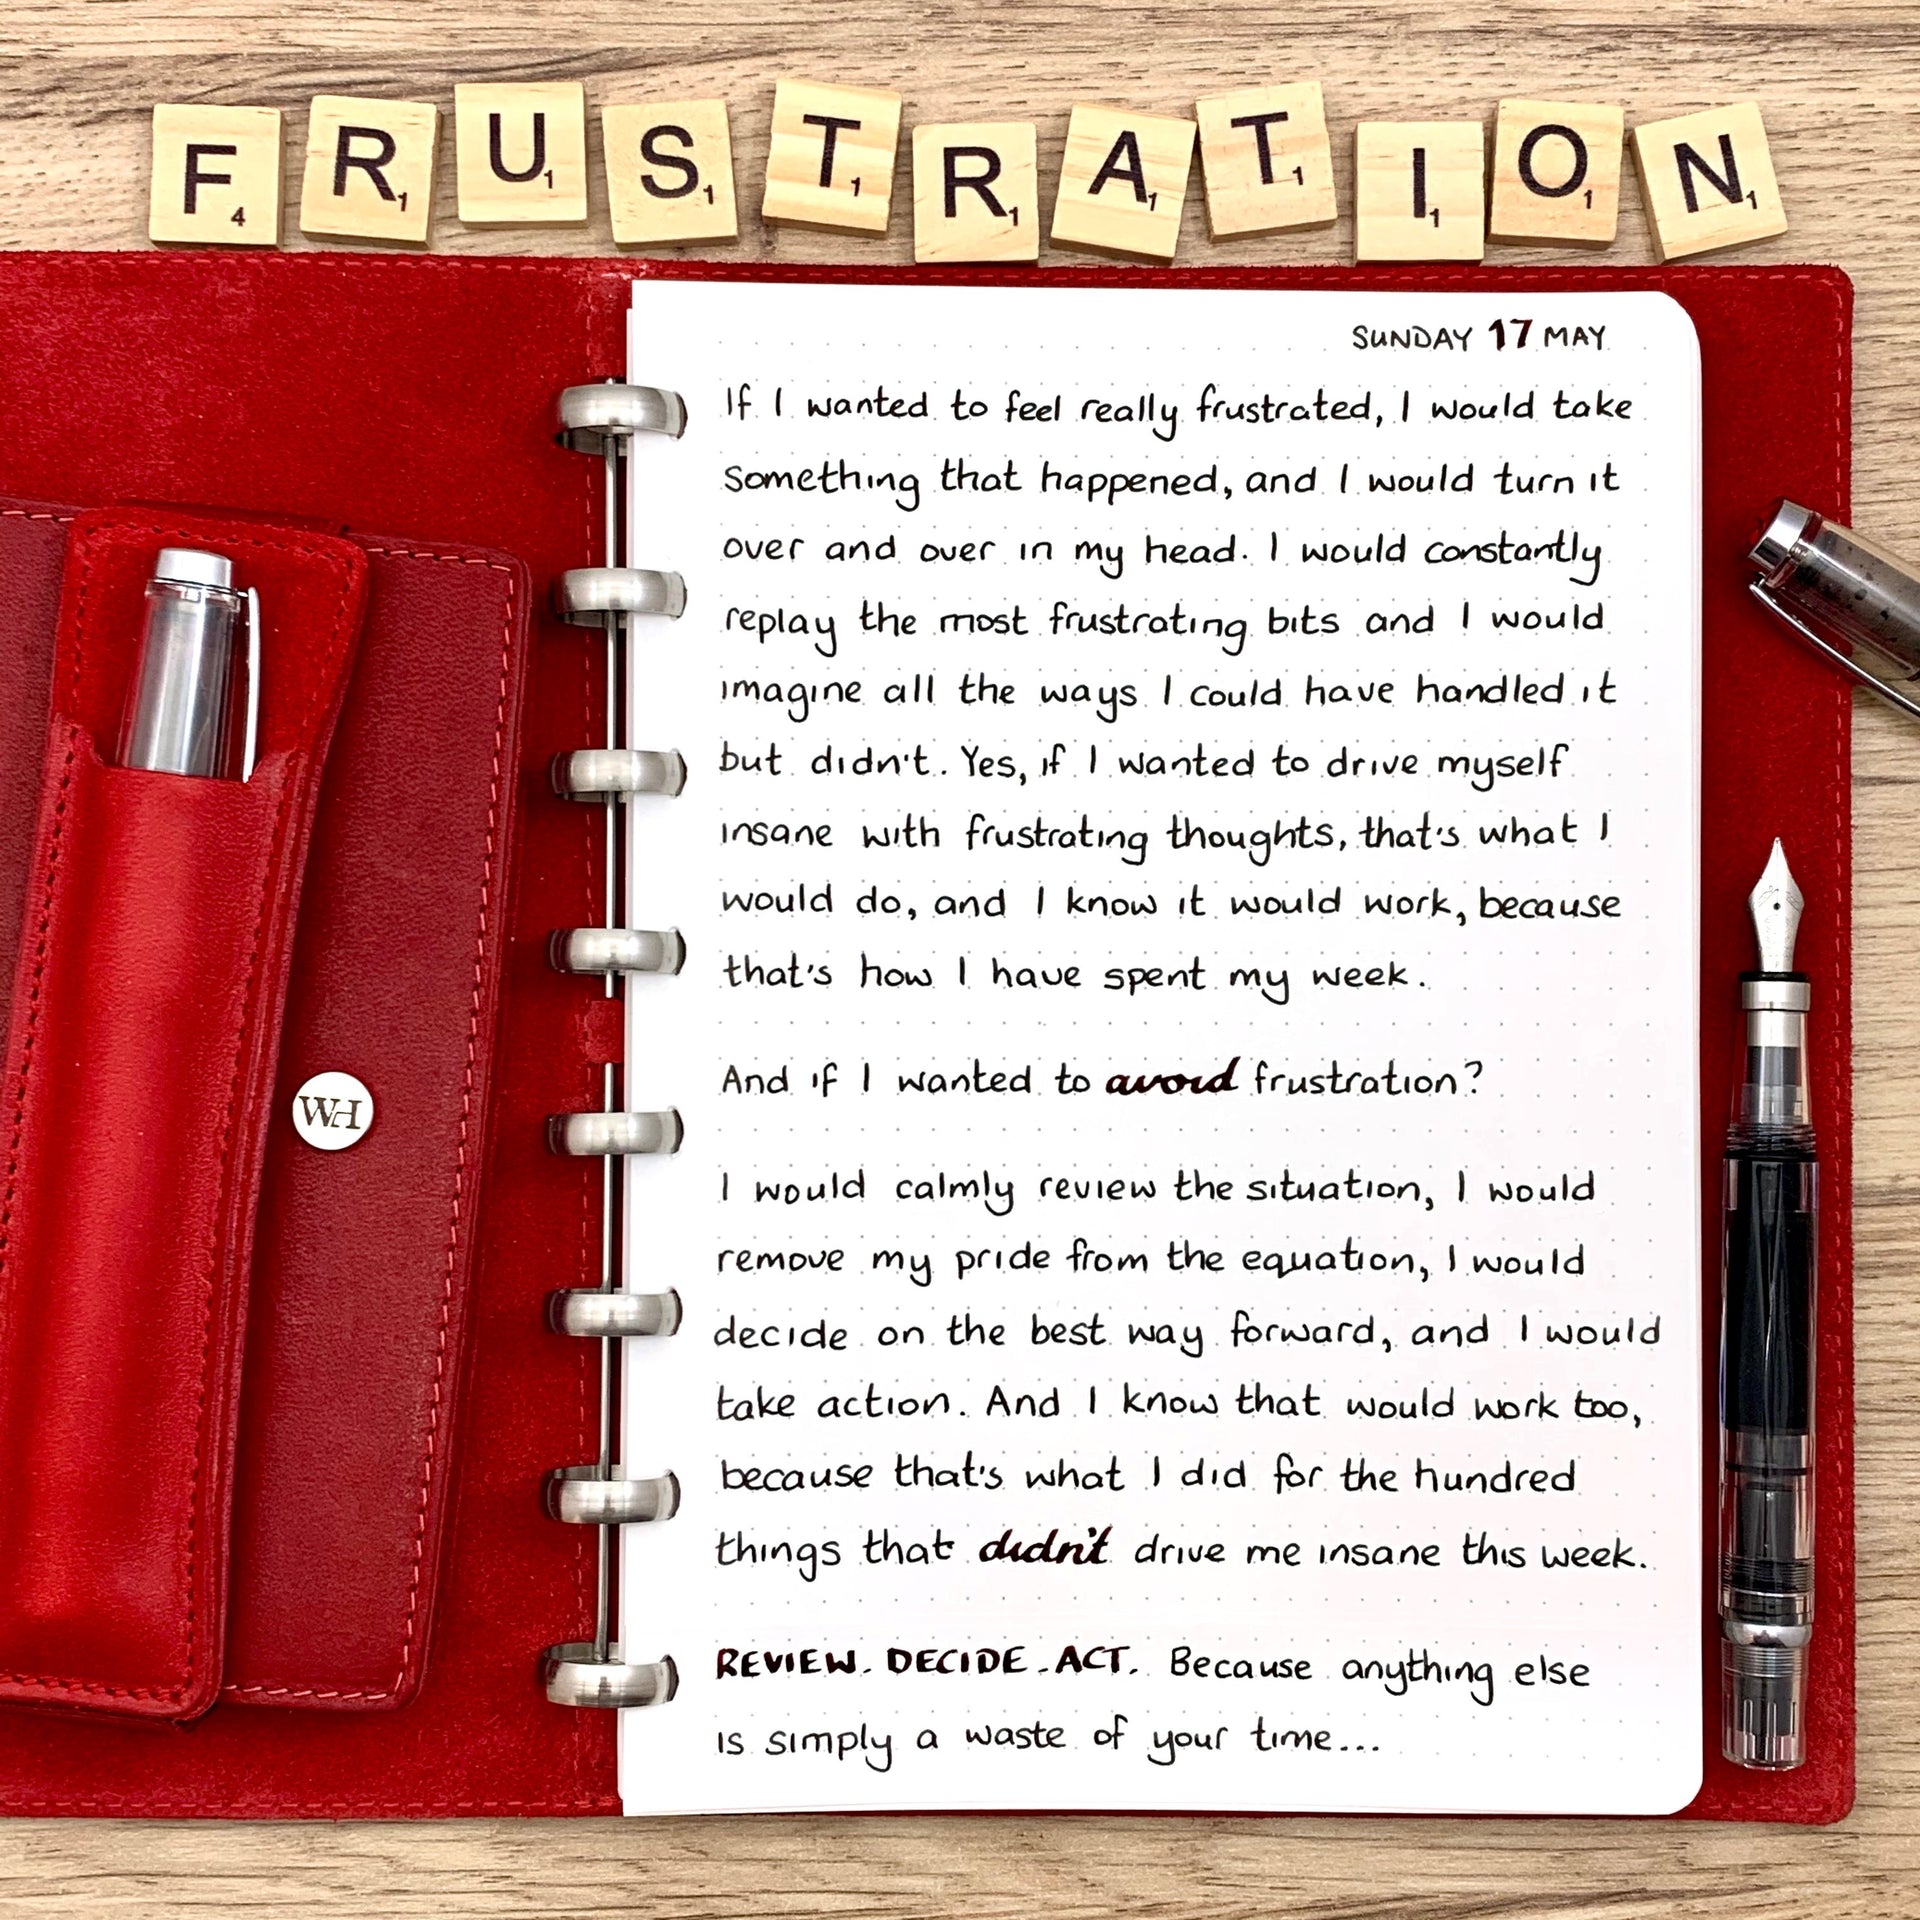 FRUSTRATION
F4 R1 U1 S1 T1 R1 A1 T1 I1 O1 N1
SUNDAY 17 MAY
If I wanted to feel really frustrated, I would take
something that happened, and I would turn it
over and over in my head. I would constantly
replay the most frustrating bits and I would
imagine all the ways I could have handled it
but didn't. Yes, if I wanted to drive myself
insane with frustrating thoughts, that's what I
would do, and I know it would work, because
that's how I have spent my week.
And if I wanted to avoid frustration?
I would calmly review the situation, I would
remove my pride from the equation, I would
decide on the best way forward, and I would
take action. And I know that would work too,
because that's what I did for the hundred
things that didn't drive me insane this week.
REVIEW. DECIDE. ACT. Because anything else
is simply a waste of your time...
WH